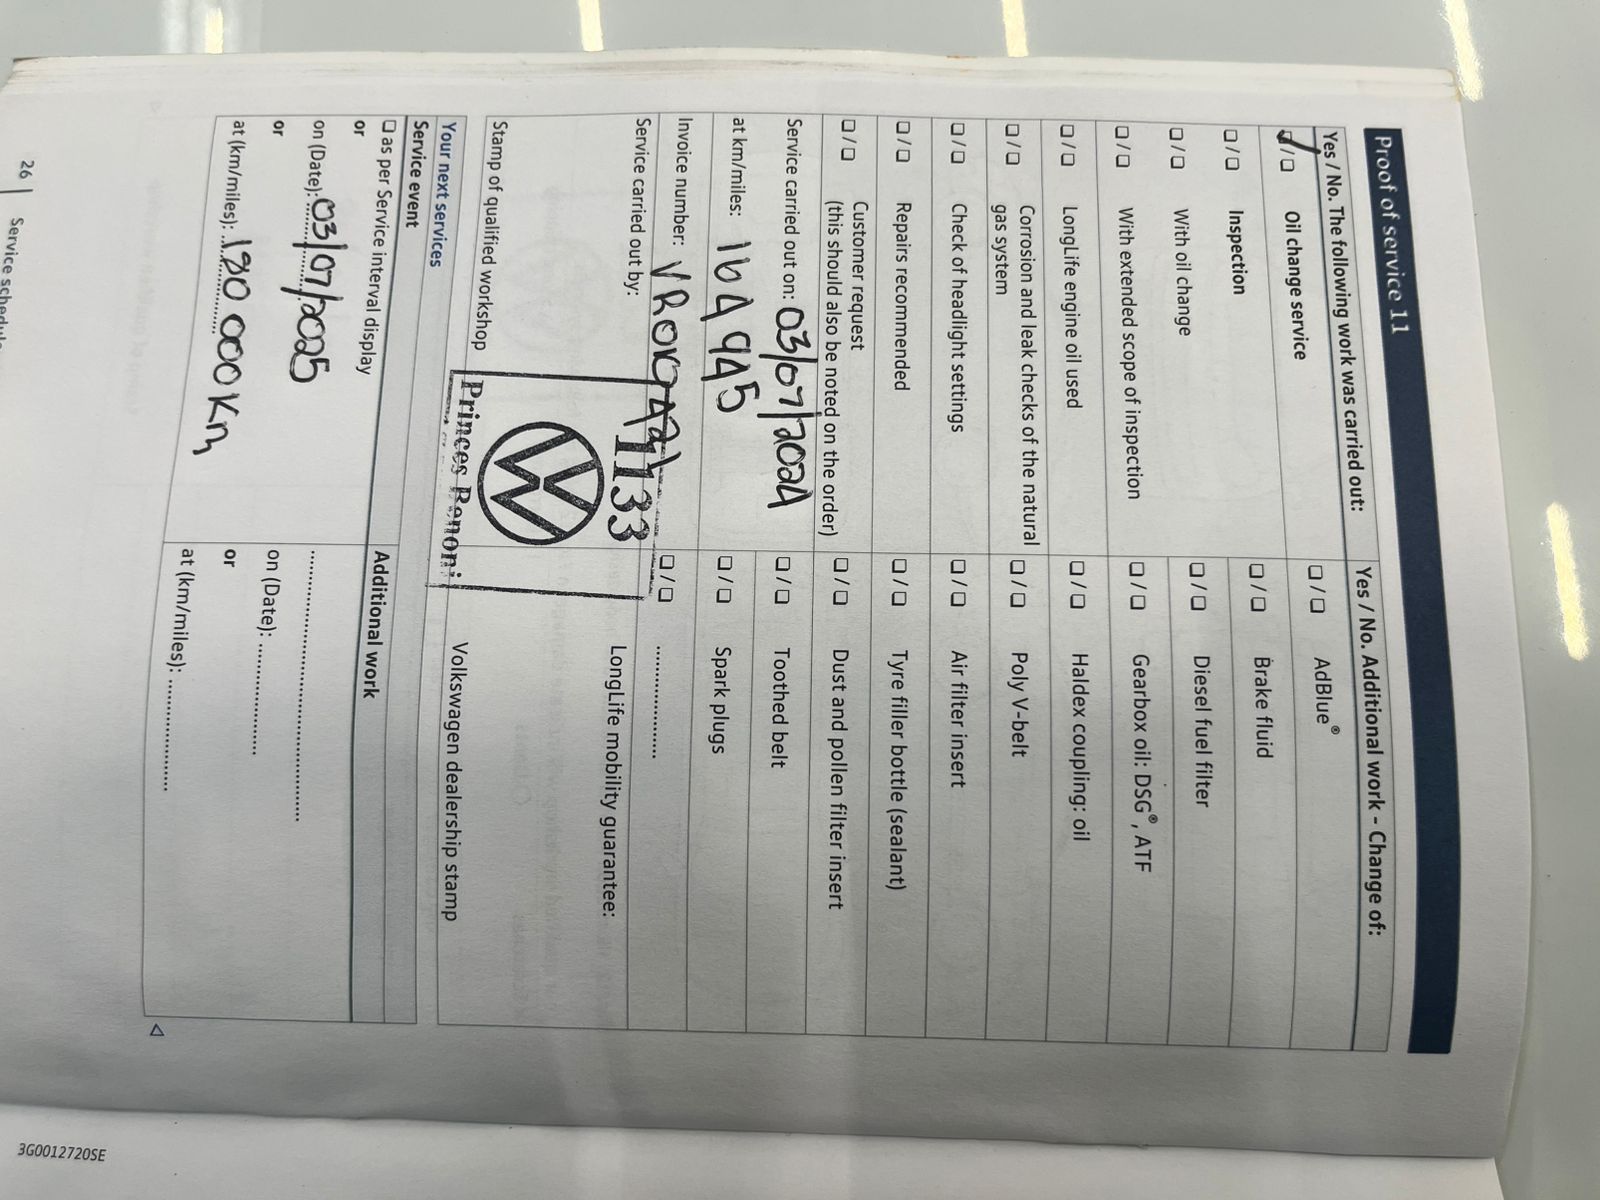 Proof of service 11
Yes / No. The following work was carried out:
Oil change service
Inspection
With oil change
With extended scope of inspection
LongLife engine oil used
Corrosion and leak checks of the natural
gas system
Check of headlight settings
Repairs recommended
Customer request
(this should also be noted on the order)
Service carried out on: 03/07/2024
at km/miles: 164 945
Invoice number:
Service carried out by:
1133
Stamp of qualified workshop
Princes Benoni
Yes / No. Additional work - Change of:
AdBlue®
Brake fluid
Diesel fuel filter
Gearbox oil: DSG®, ATF
Haldex coupling: oil
Poly V-belt
Air filter insert
Tyre filler bottle (sealant)
Dust and pollen filter insert
Toothed belt
Spark plugs
LongLife mobility guarantee:
Volkswagen dealership stamp
Your next services
Service event
as per Service interval display
or
on (Date): 03/07/2025
or
at (km/miles): 180 000 Km
Additional work
on (Date):
or
at (km/miles):
26 | Service schedule
3G0012720SE